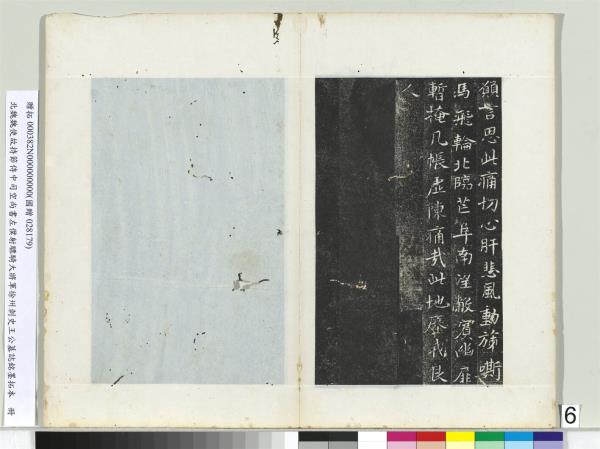 願言思此痛切心肝悲風動旆嘶
馬飛輪北臨芒阜南望敞賓幽扉
暫掩几帳虛陳痛哉此地殲我良
人
贈拓 000382N000000000(國贈 028179)
北魏魏使故持節侍中司空尚書左僕射驃騎大將軍徐州刺史王公墓誌銘墨拓本 冊
6